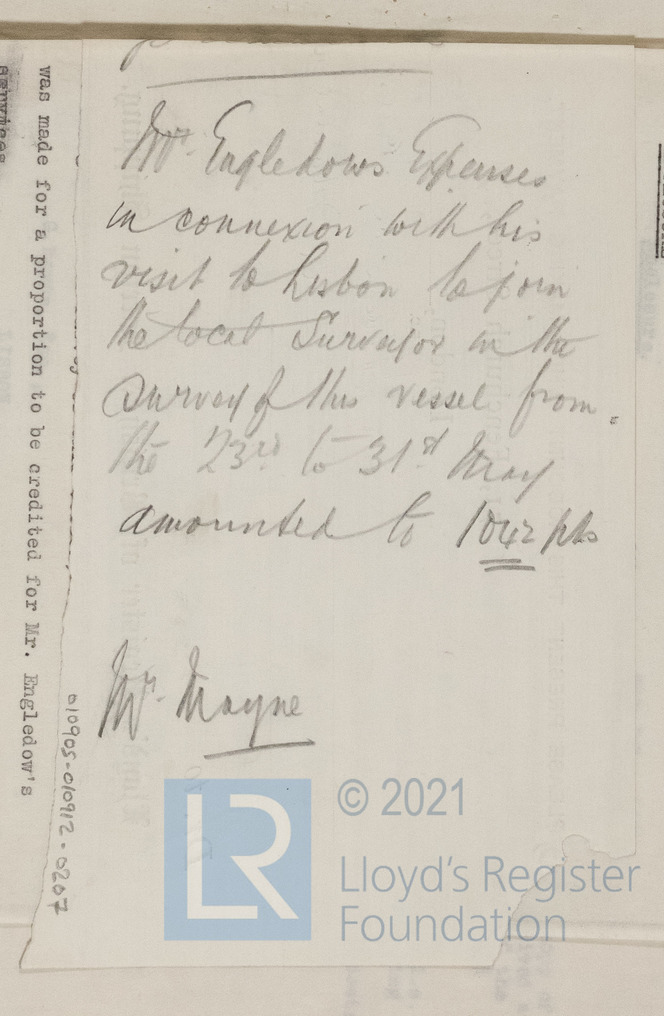 Mr. Engledows Expenses
in connexion with his
visit to Lisbon to join
the local Surveyor in the
survey of this vessel from
the 23rd to 31st May
amounted to 1042 pts
Mr. Mayne
was made for a proportion to be credited for Mr. Engledow's
services
010905-010912-0207
LR
© 2021
Lloyd's Register
Foundation